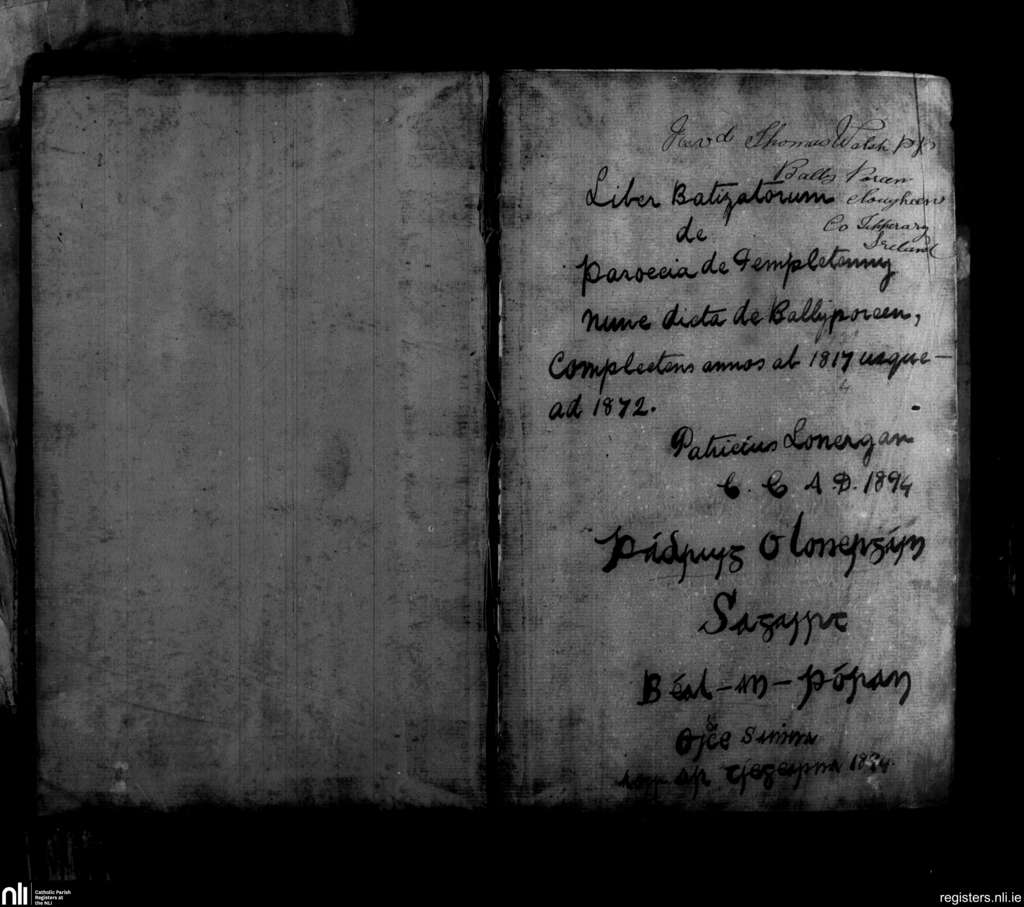 Revd Thomas Walsh pp
Bally Poreen
Clougheen
Co Tipperary
Ireland
Liber Batizatorum
de
Paroecia de Templetenny
nunc dicta de Ballyporeen,
Complectens annos ab 1817 usque
ad 1872.
Patricius Lonergan
C. C A.D. 1894
Pádruig O Lonergáin
Sagairt
Béal-an-Póirin
Oiċe
1894.
nli
Catholic Parish
Registers at
the NLI
registers.nli.ie